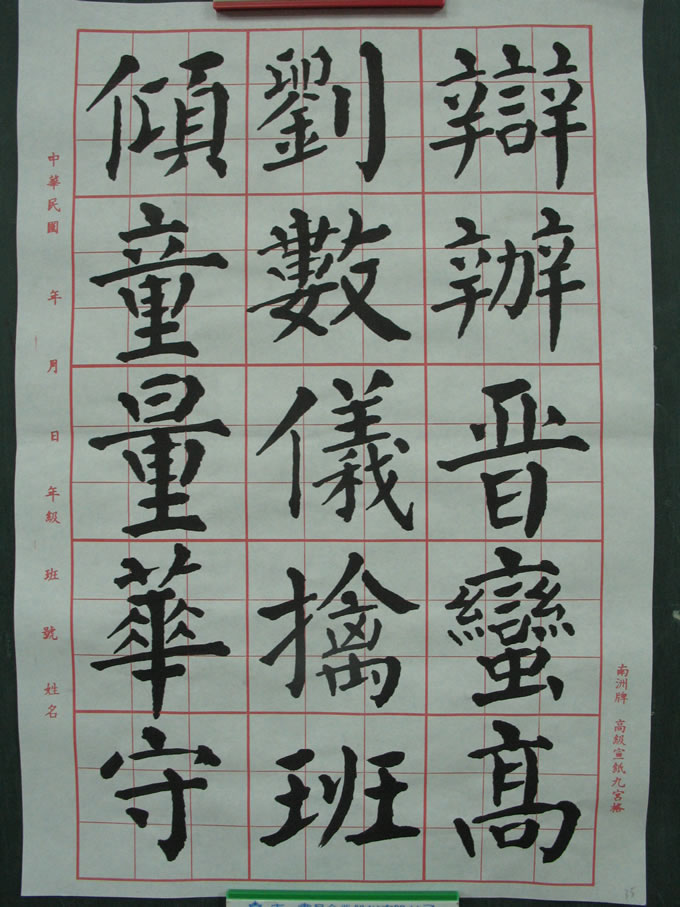 南洲牌 高級宣紙九宮格
辯辦晋蠻髙
劉數儀擒班
傾童量華守
中華民國 年 月 日 年級 班 號 姓名